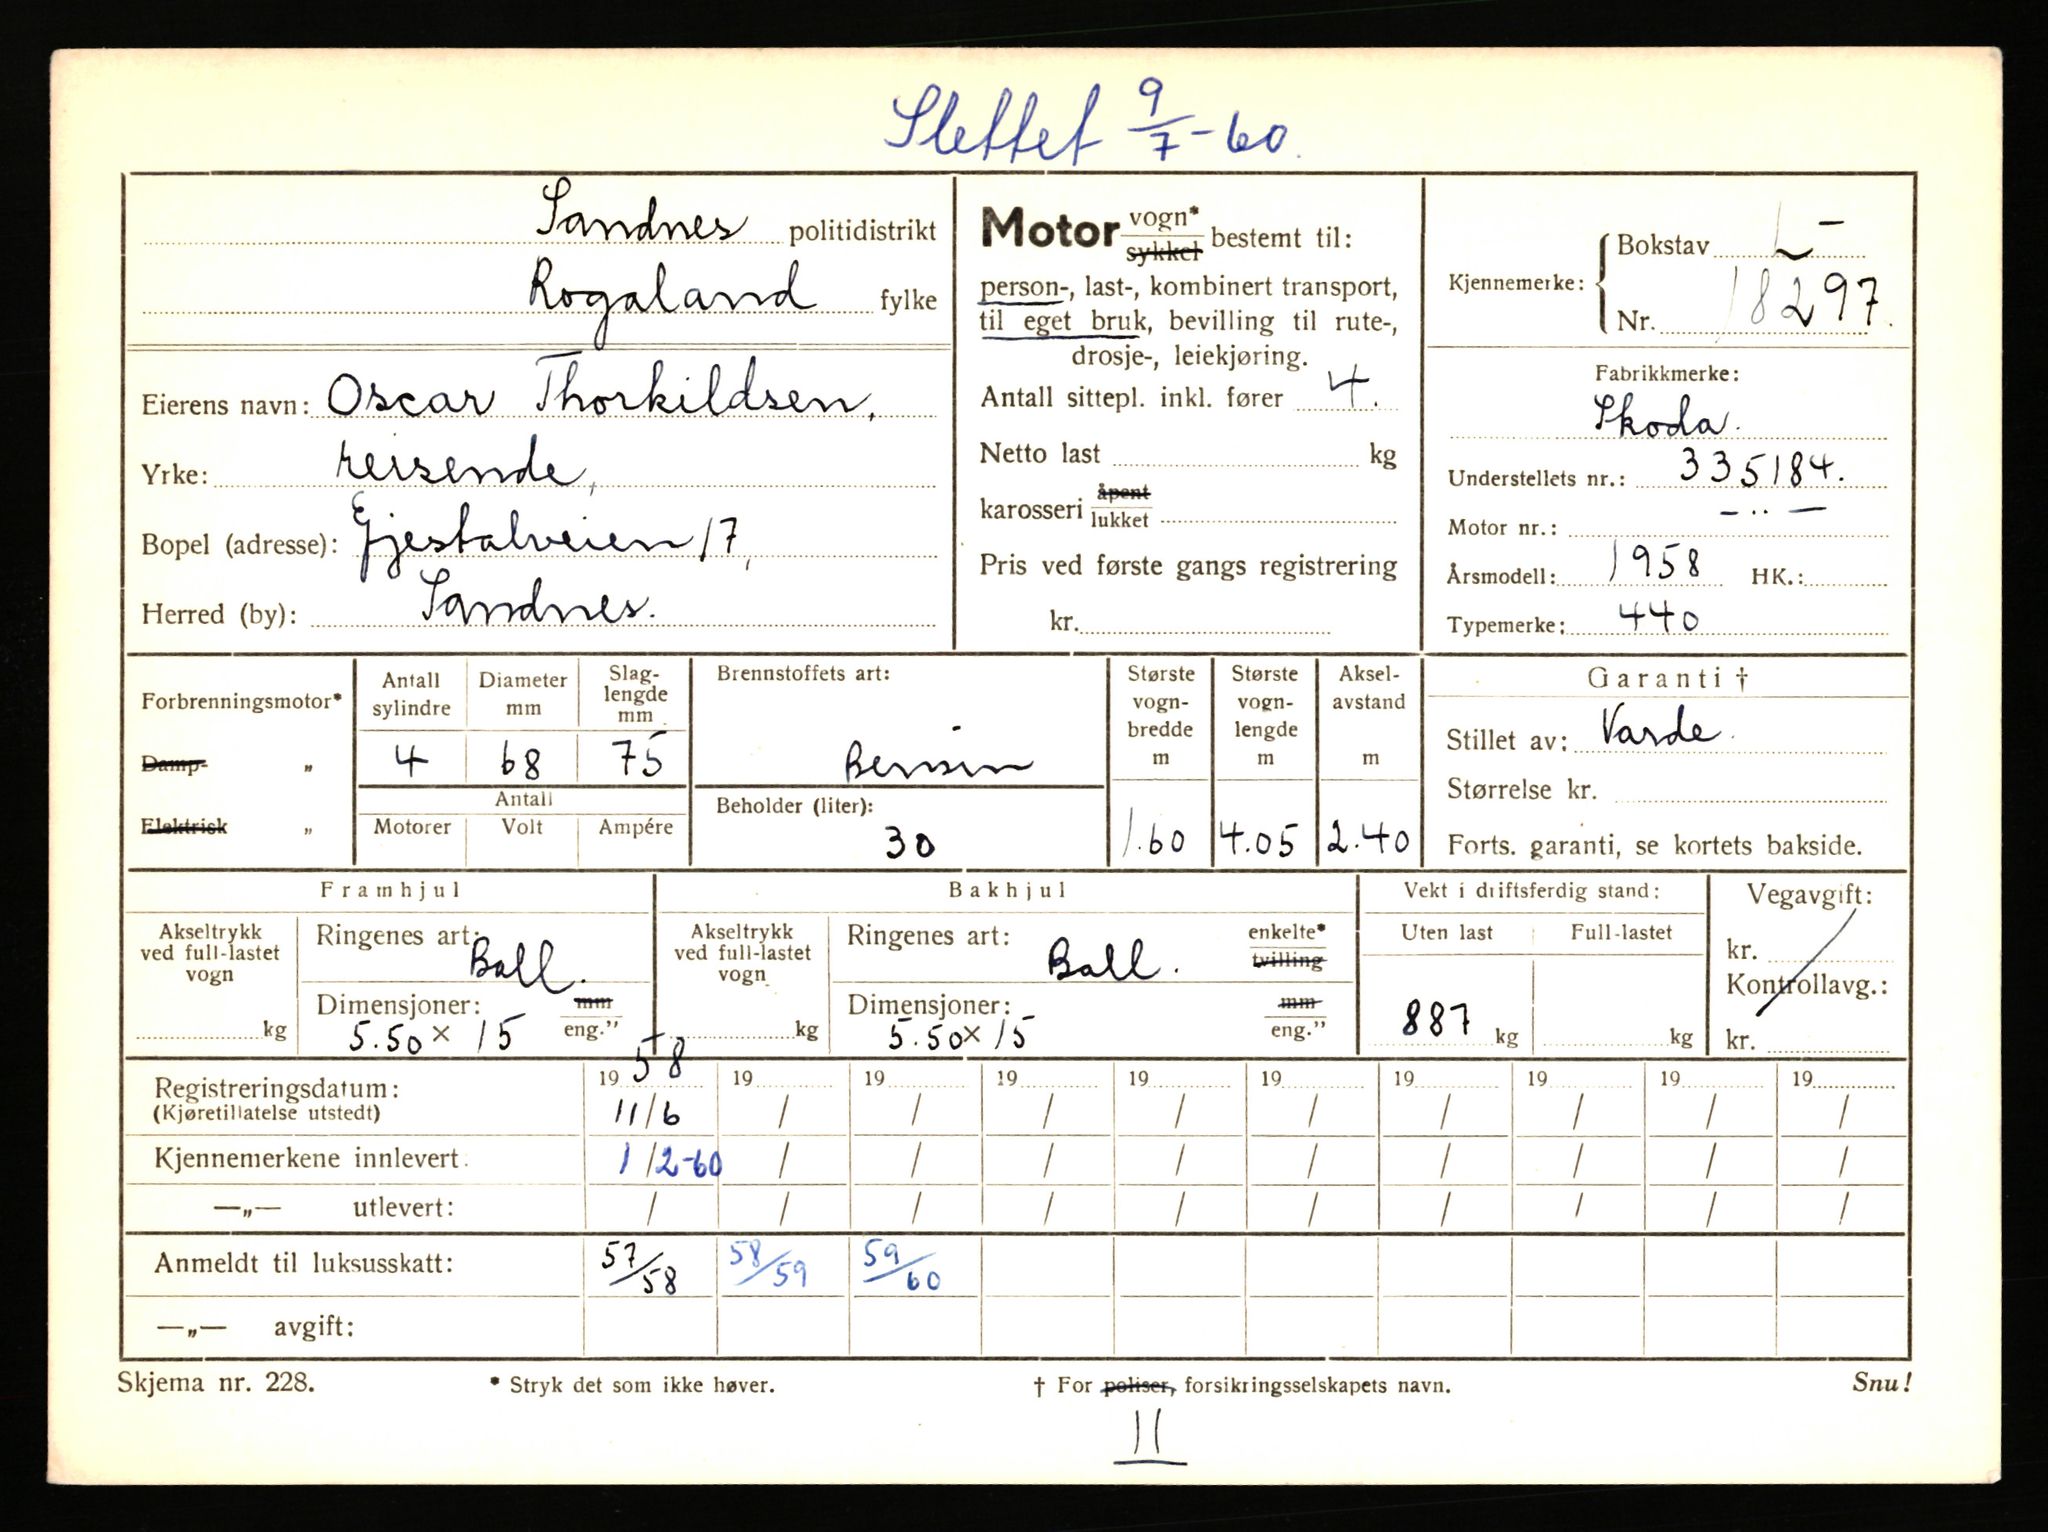 Slettet 9/7-60.
Sandnes politidistrikt
Rogaland fylke
Eierens navn: Oscar Thorkildsen,
Yrke: reisende,
Bopel (adresse): Gjestalveien 17,
Herred (by): Sandnes.
Motor vogn* / sykkel bestemt til:
person-, last-, kombinert transport,
til eget bruk, bevilling til rute-,
drosje-, leiekjøring.
Antall sittepl. inkl. fører 4.
Netto last kg
karosseri åpent / lukket
Pris ved første gangs registrering
kr.
Kjennemerke: { Bokstav L-
Nr. 18297.
Fabrikkmerke:
Skoda.
Understellets nr.: 335184.
Motor nr.: – ·· –
Årsmodell: 1958 HK.:
Typemerke: 440
Forbrenningsmotor*
Damp- „
Elektrisk „
Antall sylindre Diameter mm Slaglengde mm
4 68 75
Antall
Motorer Volt Ampére
Brennstoffets art:
Bensin
Beholder (liter):
30
Største vogn-bredde m 1.60
Største vogn-lengde m 4.05
Aksel-avstand m 2.40
Garanti †
Stillet av: Varde.
Størrelse kr.
Forts. garanti, se kortets bakside.
Framhjul
Akseltrykk ved full-lastet vogn
kg
Ringenes art: Ball.
Dimensjoner: mm / eng."
5.50 × 15
Bakhjul
Akseltrykk ved full-lastet vogn
kg
Ringenes art: Ball. enkelte* / tvilling
Dimensjoner: mm / eng."
5.50 × 15
Vekt i driftsferdig stand:
Uten last Full-lastet
887 kg kg
Vegavgift:
kr.
Kontrollavg.:
kr.
Registreringsdatum: 19 58 19 19 19 19 19 19 19 19 19
(Kjøretillatelse utstedt) 11/6 / / / / / / / / /
Kjennemerkene innlevert: 1/2-60 / / / / / / / / /
—„— utlevert: / / / / / / / / / /
Anmeldt til luksusskatt: 57/58 58/59 59/60
—„— avgift:
Skjema nr. 228. * Stryk det som ikke høver. † For poliser, forsikringsselskapets navn. Snu!
11